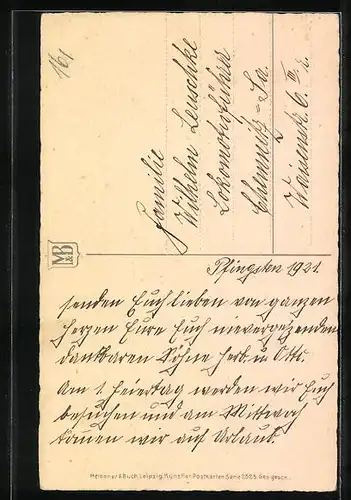 161
Familie
Wilhelm Leuschke
Lokomotivführer
Chemnitz-Sa.
Waisenstr. 6 III r.
M&B
Pfingsten 1921.
senden Euch lieben von ganzen
Herzen Eure Euch nievergeßenden
dankbaren Söhne Herb. u Otto.
Am 1. Feiertag werden wir Euch
besuchen und am Mittwoch
fahren wir auf Urlaub.
Meissner & Buch, Leipzig. Künstler-Postkarten Serie 2525. Ges. gesch.